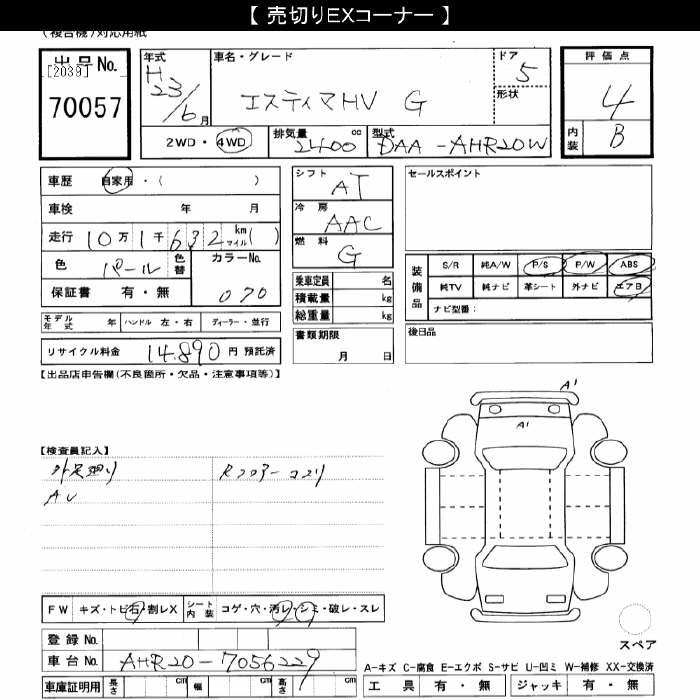 【 売切りEXコーナー 】
(複合機)対応用紙
出品No.
[2039]
70057
年式
H
23/6月
車名・グレード
エスティマHV G
ドア
5
形状
評価点
4
内装
B
2WD・4WD
排気量
2400 cc
型式
DAA-AHR20W
車歴 自家用・( )
車検 年 月
走行 10万1千632 km マイル( )
色 パール 色替 カラーNo. 070
保証書 有・無
モデル年式 年 ハンドル 左・右 ディーラー・並行
リサイクル料金 14.890 円 預託済
シフト AT
冷房 AAC
燃料 G
乗車定員 名
積載量 kg
総重量 kg
書類期限
月 日
セールスポイント
装備品
S/R 純A/W P/S P/W ABS
純TV 純ナビ 革シート 外ナビ エアB
ナビ型番:
後日品
【出品店申告欄(不良箇所・欠品・注意事項等)】
【検査員記入】
外足廻り
AU
Rフロアーコスリ
FW キズ・トビ石・割レX シート内装 コゲ・穴・汚レ・シミ・破レ・スレ
登録 No.
車台 No. AHR20-7056229
車庫証明用 長さ cm 幅 cm 高さ cm
A1
A1
スペア
A-キズ C-腐食 E-エクボ S-サビ U-凹ミ W-補修 XX-交換済
工具 有・無 ジャッキ 有・無